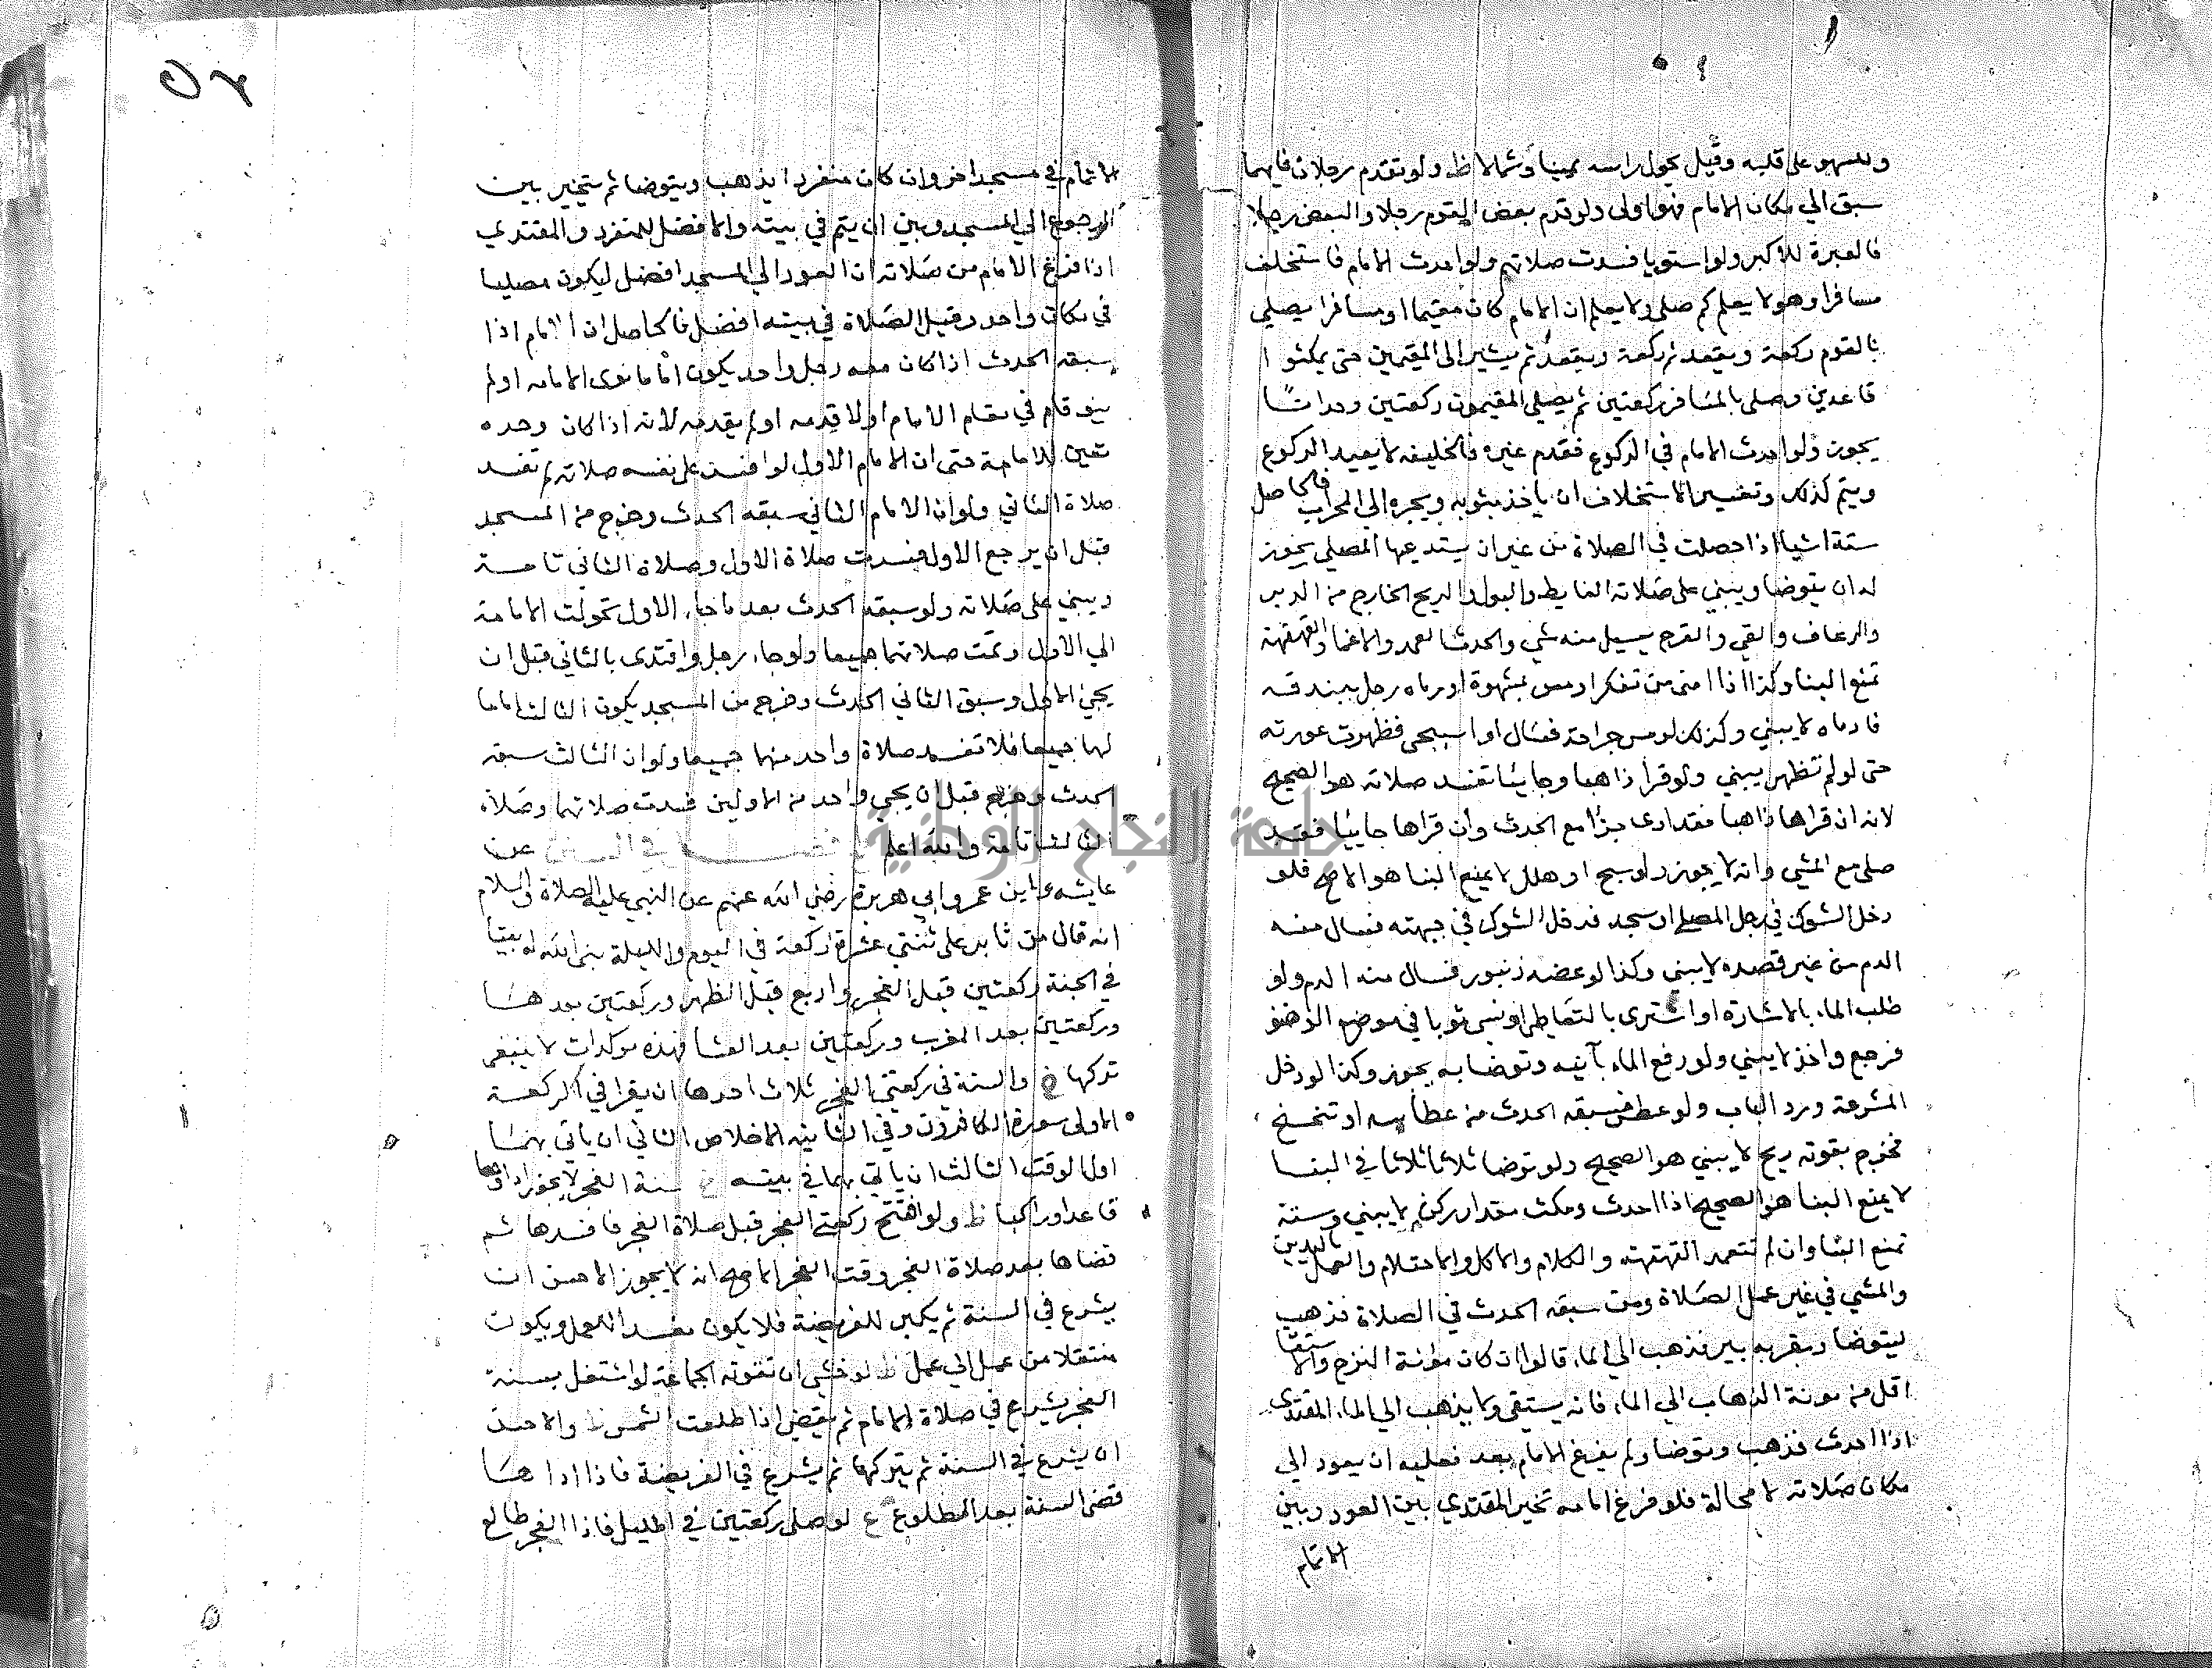 وللسهو على قلبه وقيل يحول راسه يمينا وشمالا ظ ولو تقدم رجلان فايهما
سبق الي مكان الامام فهو اولى ولو قدم بعض القوم رجلا والبعض رجلا
فالعبرة للاكبر ولو استويا فسدت صلاتهم ولو احدث الامام فاستخلف
مسافرا وهو لا يعلم كم صلى ولا يعلم ان الامام كان مقيما او مسافرا يصلي
بالقوم ركعة ويقعد ثم ركعة ويقعد ثم يشير الى المقيمين حتى يمكثوا
قاعدين وصلى بالمسافر ركعتين ثم يصلي المقيمون ركعتين وحدانا
يجوز ولو احدث الامام في الركوع فقدم غيره فالخليفه لا يعيد الركوع
ويتم كذلك وتفسير الاستخلاف ان ياخذ بثوبه ويجره الي المحراب فالحاصل
ستة اشيا اذا حصلت في الصلاة من غير ان يستدعيها المصلي يجوز
له ان يتوضا ويبني على صلاته الغايط والبول والريح الخارج من الدبر
والرعاف والقي والقرح يسيل منه شي والحدث العمد والاغما والقهقهة
تمنع البنا وكذا اذا امنى من تفكر او مس بشهوة او رماه رجل ببندقه
فادماه لا يبني وكذلك لو مس جراحته فسال او استنجى فظهرت عورته
حتى لو لم تظهر يبني ولو قرا ذاهبا وجائيا تفسد صلاته هو الصحيح
لانه ان قراها ذاهبا فقد ادى جزا مع الحدث وان قراها جائيا فقد
صلى مع المشي وانه لا يجوز ولو سبح او هلل لا يمنع البنا هو الاصح فلو
دخل الشوك في رجل المصلي او سجد فدخل الشوك في جبهته فسال منه
الدم من غير قصده لا يبني وكذا لو عضه زنبور فسال منه الدم ولو
طلب الماء بالاشارة او اشترى بالتعاطي او نسي ثوبا في موضع الوضو
فرجع واخذ لا يبني ولو رفع الماء بآنيه وتوضا به يجوز وكذا لو دخل
المشرعة ورد الباب ولو عطس فسبقه الحدث من عطاسه او تنحنح
فخرج بقوته ريح لا يبني هو الصحيح ولو توضا ثلاثا ثلاثا في البنا
لا يمنع البنا هو الصحيح اذا احدث ومكث مقدار ركن لا يبني وستة
تمنع البنا وان لم تتعمد القهقهه والكلام والاكل والاحتلام والعمل باليدين
والمشي في غير عمل الصلاة ومن سبقه الحدث في الصلاة فذهب
ليتوضا وبقربه بير فذهب الي الماء قالوا ان كان مؤنة النزح والاستقا
اقل من مونة الذهاب الي الماء فانه يستقي ولا يذهب الي الماء المقتدي
اذا احدث فذهب وتوضا ولم يفرغ الامام بعد فعليه ان يعود الي
مكان صلاته لا محالة فلو فرغ امامه تخير المقتدي بين العود وبين
الاتمام
الاتمام في مسجد اخر وان كان منفردا يذهب ويتوضا ثم يتخير بين
الرجوع الي المسجد وبين ان يتم في بيته والافضل للمنفرد والمقتدي
اذا فرغ الامام من صلاته ان العود الي المسجد افضل ليكون مصليا
في مكان واحد وقيل الصلاة في بيته افضل فالحاصل ان الامام اذا
سبقه الحدث اذا كان معه رجل واحد يكون اماما نوى الامامه او لم
ينو قام في مقام الامام اولا قدمه او لم يقدمه لانه اذا كان وحده
تعين للامامة حتى ان الامام الاول لو افسد على نفسه صلاته لم تفسد
صلاة الثاني ولو ان الامام الثاني سبقه الحدث وخرج من المسجد
قبل ان يرجع الاول فسدت صلاة الاول وصلاة الثاني تامة
ويبني على صلاته ولو سبقه الحدث بعد ما جاء الاول تحولت الامامة
الي الاول وتمت صلاتهما جميعا ولو جاء رجل واقتدى بالثاني قبل ان
يجي الاول وسبق الثاني الحدث وخرج من المسجد يكون الثالث اماما
لها جميعا فلا تفسد صلاة واحد منهما جميعا ولو ان الثالث سبقه
الحدث وخرج قبل ان يجي واحد من الاولين فسدت صلاتهما وصلاة
الثالث تامة والله اعلم فصل في السنن عن
عايشه وابن عمر وابي هريرة رضي الله عنهم عن النبي عليه الصلاة والسلام
انه قال من ثابر على ثنتي عشرة ركعة في اليوم والليلة بنى الله له بيتا
في الجنة ركعتين قبل الفجر واربع قبل الظهر وركعتين بعدها
وركعتين بعد المغرب وركعتين بعد العشا فهذه موكدات لا ينبغي
تركها والسنة في ركعتي الفجر ثلاث احدها ان يقرا في الركعة
الاولى سورة الكافرون وفي الثانيه الاخلاص الثاني ان ياتي بهما
اول الوقت الثالث ان ياتي بهما في بيته سنة الفجر لا يجوز اداوها
قاعدا وراكبا ظ ولو افتتح ركعتي الفجر قبل صلاة الفجر فافسدها ثم
قضاها بعد صلاة الفجر وقت الفجر الاصح انه لا يجوز الاحسن ان
يشرع في السنة ثم يكبر للفريضة فلا يكون مفسد اللعمل ويكون
منتقلا من عمل الي عمل لو خشي ان تفوته الجماعة لو اشتغل بسنة
الفجر يشرع في صلاة الامام ثم يقضي اذا طلعت الشمس والاحسن
ان يشرع في السنة ثم يتركها ثم يشرع في الفريضة فاذا اداها
قضى السنة بعد الطلوع ع لو صلى ركعتين في الليل فاذا الفجر طالع
جامعة النجاح الوطنية